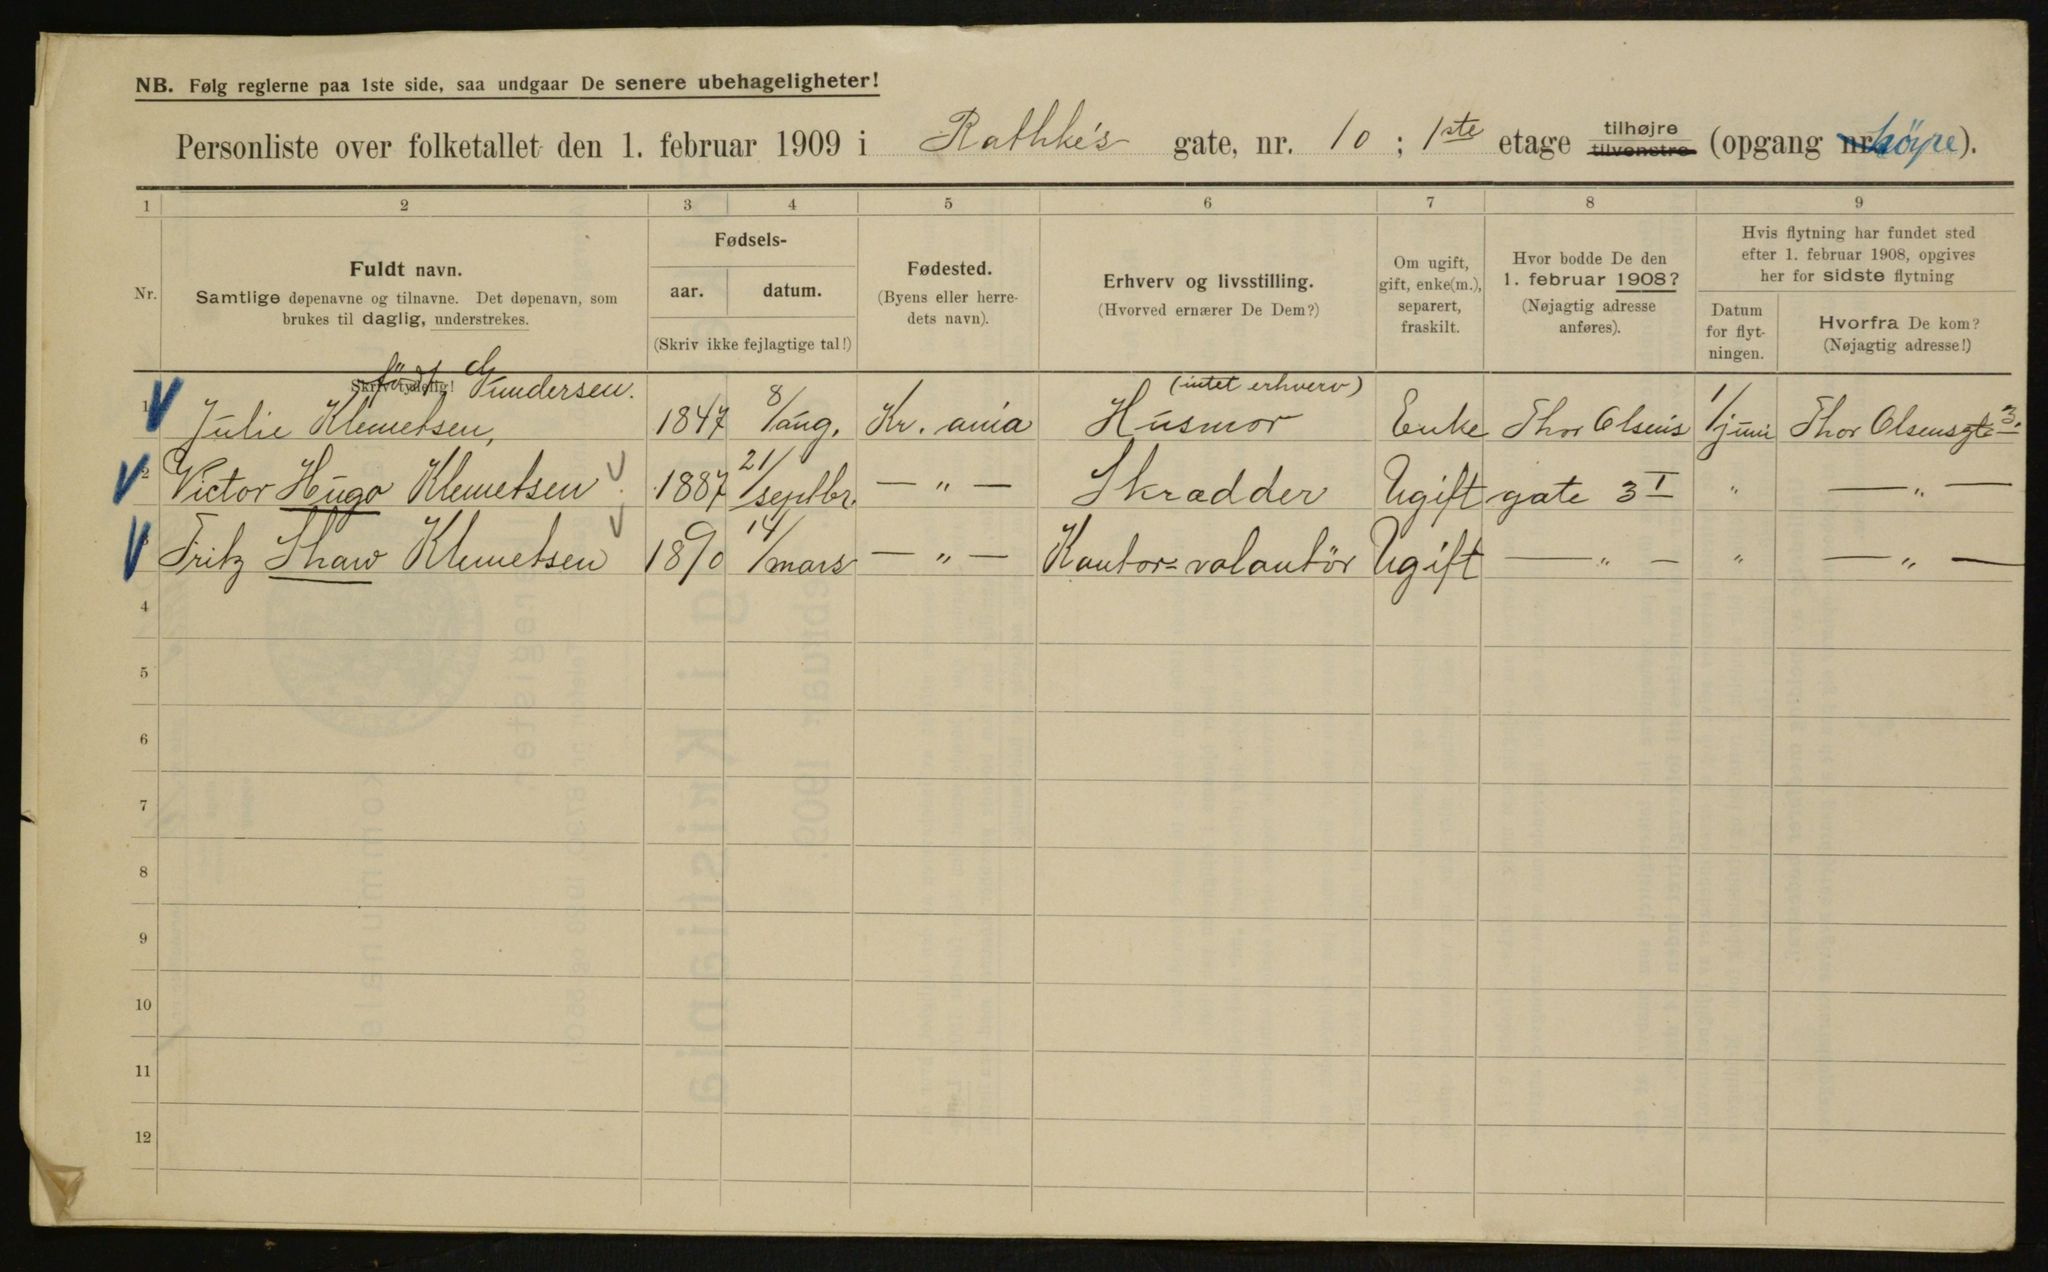 NB. Følg reglerne paa 1ste side, saa undgaar De senere ubehageligheter!
Personliste over folketallet den 1. februar 1909 i Rathkes gate, nr. 10 ; 1ste etage tilhøjre tilvenstre (opgang nr. høyre).
1 2 3 4 5 6 7 8 9
Nr.
Fuldt navn.
Samtlige døpenavne og tilnavne. Det døpenavn, som
brukes til daglig, understrekes.
Skriv tydelig!
Fødsels-
aar. datum.
(Skriv ikke fejlagtige tal!)
Fødested.
(Byens eller herre-
dets navn).
Erhverv og livsstilling.
(Hvorved ernærer De Dem?)
Om ugift,
gift, enke(m.),
separert,
fraskilt.
Hvor bodde De den
1. februar 1908?
(Nøjagtig adresse
anføres).
Hvis flytning har fundet sted
efter 1. februar 1908, opgives
her for sidste flytning
Datum
for flyt-
ningen.
Hvorfra De kom?
(Nøjagtig adresse!)
født Gundersen. (intet erhverv)
1 Julie Klemetsen, 1847 8/aug. Kr.ania Husmor Enke Thor Olsens 1/juni Thor Olsensgte 3.
2 Victor Hugo Klemetsen 1887 21/septbr. — „ — Skrædder Ugift gate 3 I „ — „ —
3 Fritz Thaw Klemetsen 1890 14/mars — „ — Kontor=volontör Ugift — „ — „ — „ —
4
5
6
7
8
9
10
11
12